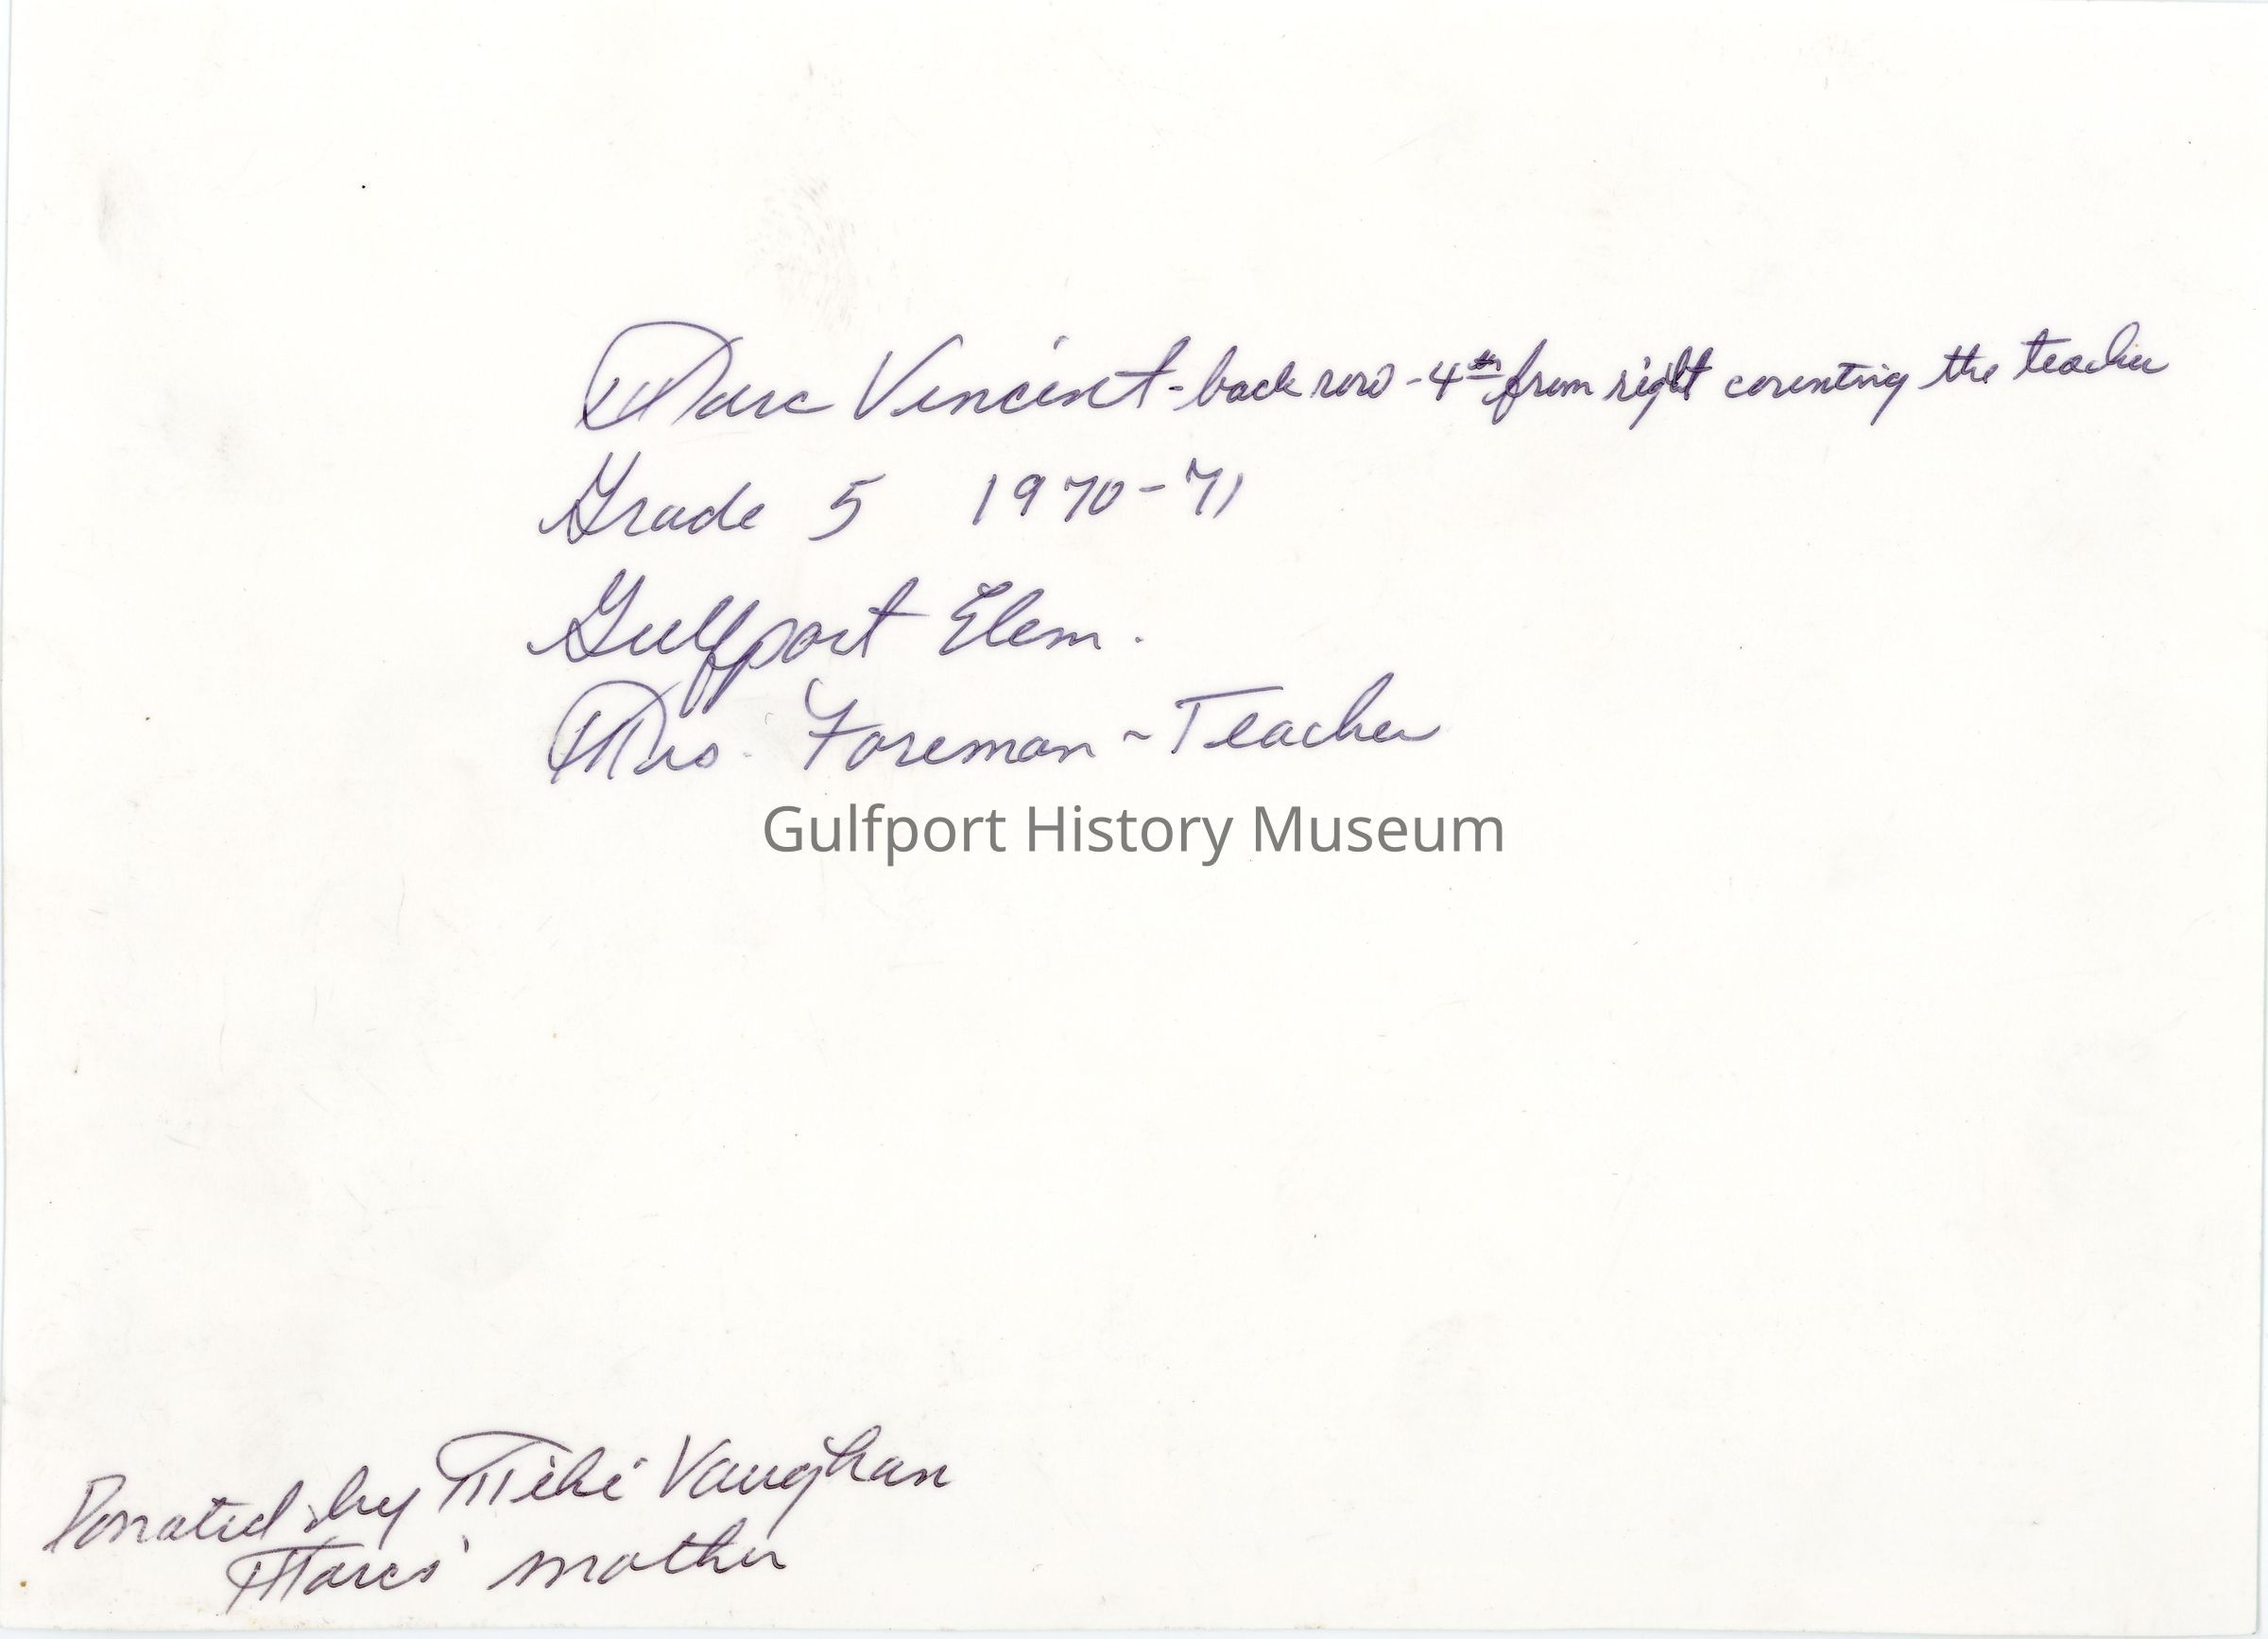 Marc Vincent - back row - 4th from right counting the teacher
Grade 5 1970-71
Gulfport Elem.
Mrs. Foreman ~ Teacher
Gulfport History Museum
Donated by Miki Vaughan
Marcs' mother